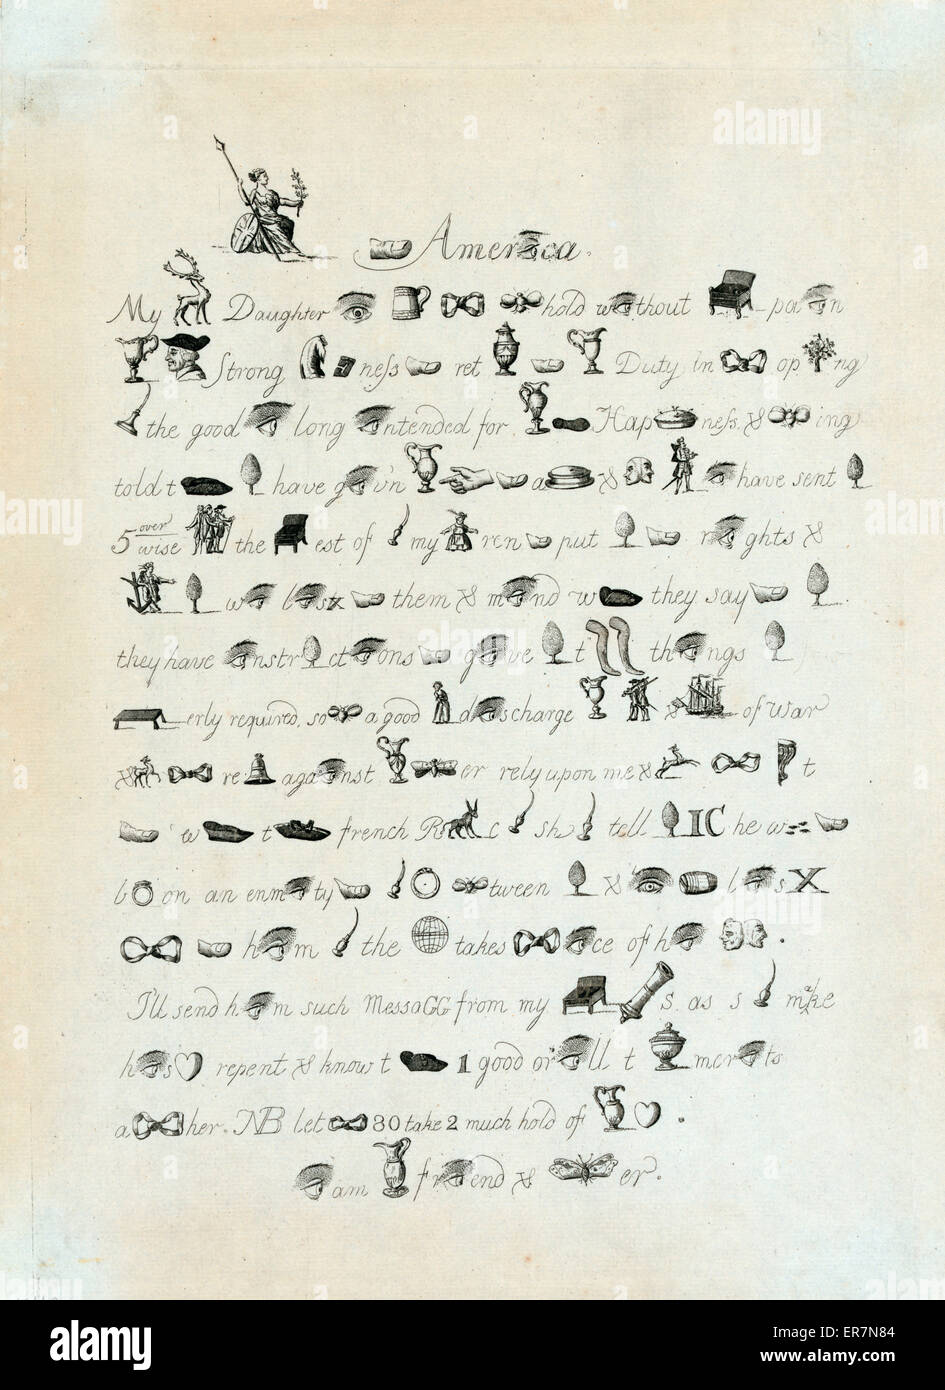 America.
My Daughter hold without pain
Strong ness ret Duty in op ng
the good long intended for Hap ness & ing
told t have g v'n a & have sent
5 over wise the est of my ren put r ghts &
w l s x them & m nd w they say
they have instr ct ons g ve t th ngs
erly required, so a good d scharge & of war
& re aga nst er rely upon me & t
w t french R c sh tell IC he w
b on an enm ty tween & l s X
h m the takes ce of h .
I'll send h m such MessaGG from my s. as s make
h s repent & know t 1 good or ll t mer ts
a her. NB let 80 take 2 much hold of .
am fr end & er.
alamy
a
alamy
a
alamy
a
alamy
a
a
alamy
Image ID: ER7N84
www.alamy.com